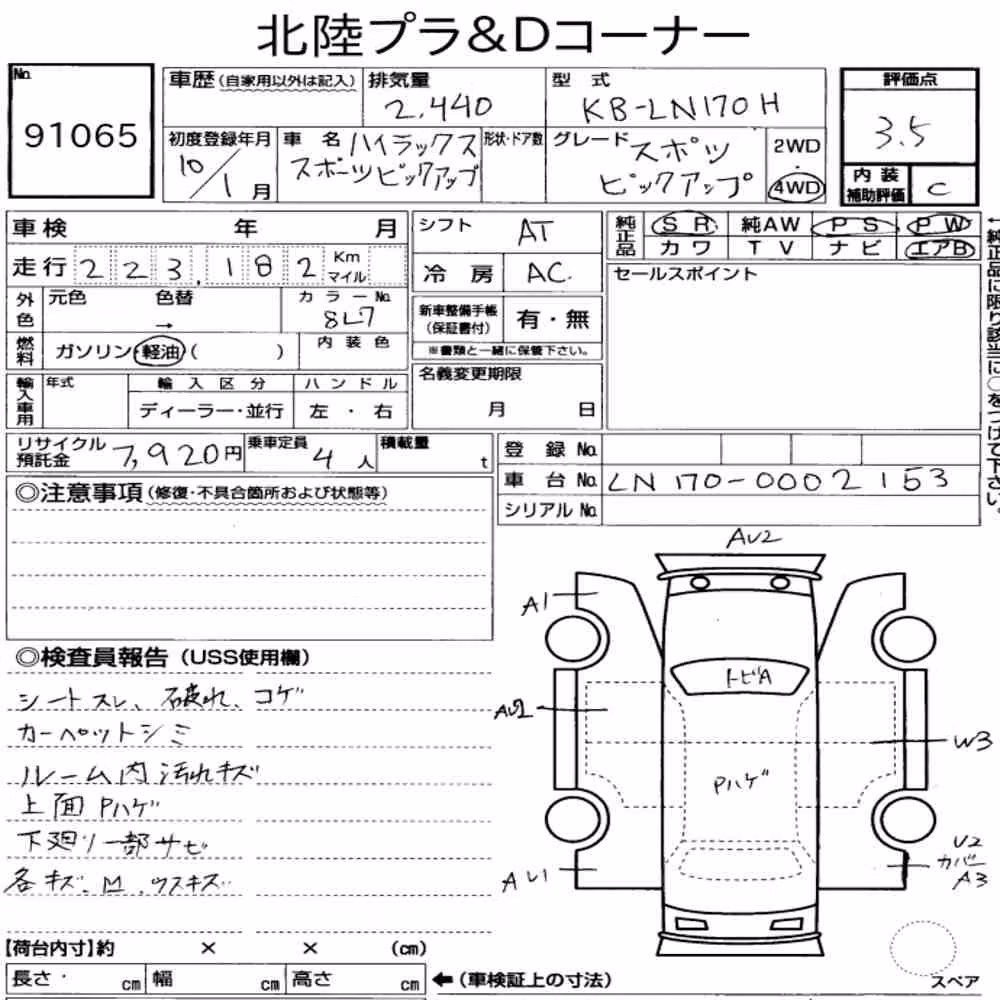 北陸プラ&Dコーナー
No.
91065
車歴(自家用以外は記入)
排気量
2,440
型 式
KB-LN170H
評価点
3.5
初度登録年月
10/1月
車 名 ハイラックス
スポーツピックアップ
形状・ドア数
グレード スポーツ
ピックアップ
2WD
・
4WD
内 装
補助評価
C
車検 年 月
シフト
AT
純正品
SR 純AW PS PW
カワ TV ナビ エアB
走行 223,182 Km
マイル
冷 房
AC.
セールスポイント
外色
元色 色替
→
カラーNo.
8L7
新車整備手帳
(保証書付)
有・無
※書類と一緒に保管下さい。
燃料
ガソリン・軽油( )
内 装 色
輸入車用
年式
輸 入 区 分
ハ ン ド ル
ディーラー・並行
左 ・ 右
名義変更期限
月 日
←純正品に限り該当に○をつけて下さい。
リサイクル
預託金
7,920円
乗車定員
4人
積載量
t
登 録 No.
車 台 No. LN170-0002153
シリアル No.
◎注意事項(修復・不具合箇所および状態等)
◎検査員報告(USS使用欄)
シートスレ、破れ、コゲ
カーペットシミ
ルーム内汚れキズ
上面Pハゲ
下廻リ一部サビ
各キズ、M、ウスキズ
AU2
A1
トビA
AU2
W3
Pハゲ
U2
カバー
A3
AU1
【荷台内寸】約 × × (cm)
長さ・ cm 幅 cm 高さ cm ←(車検証上の寸法)
スペア